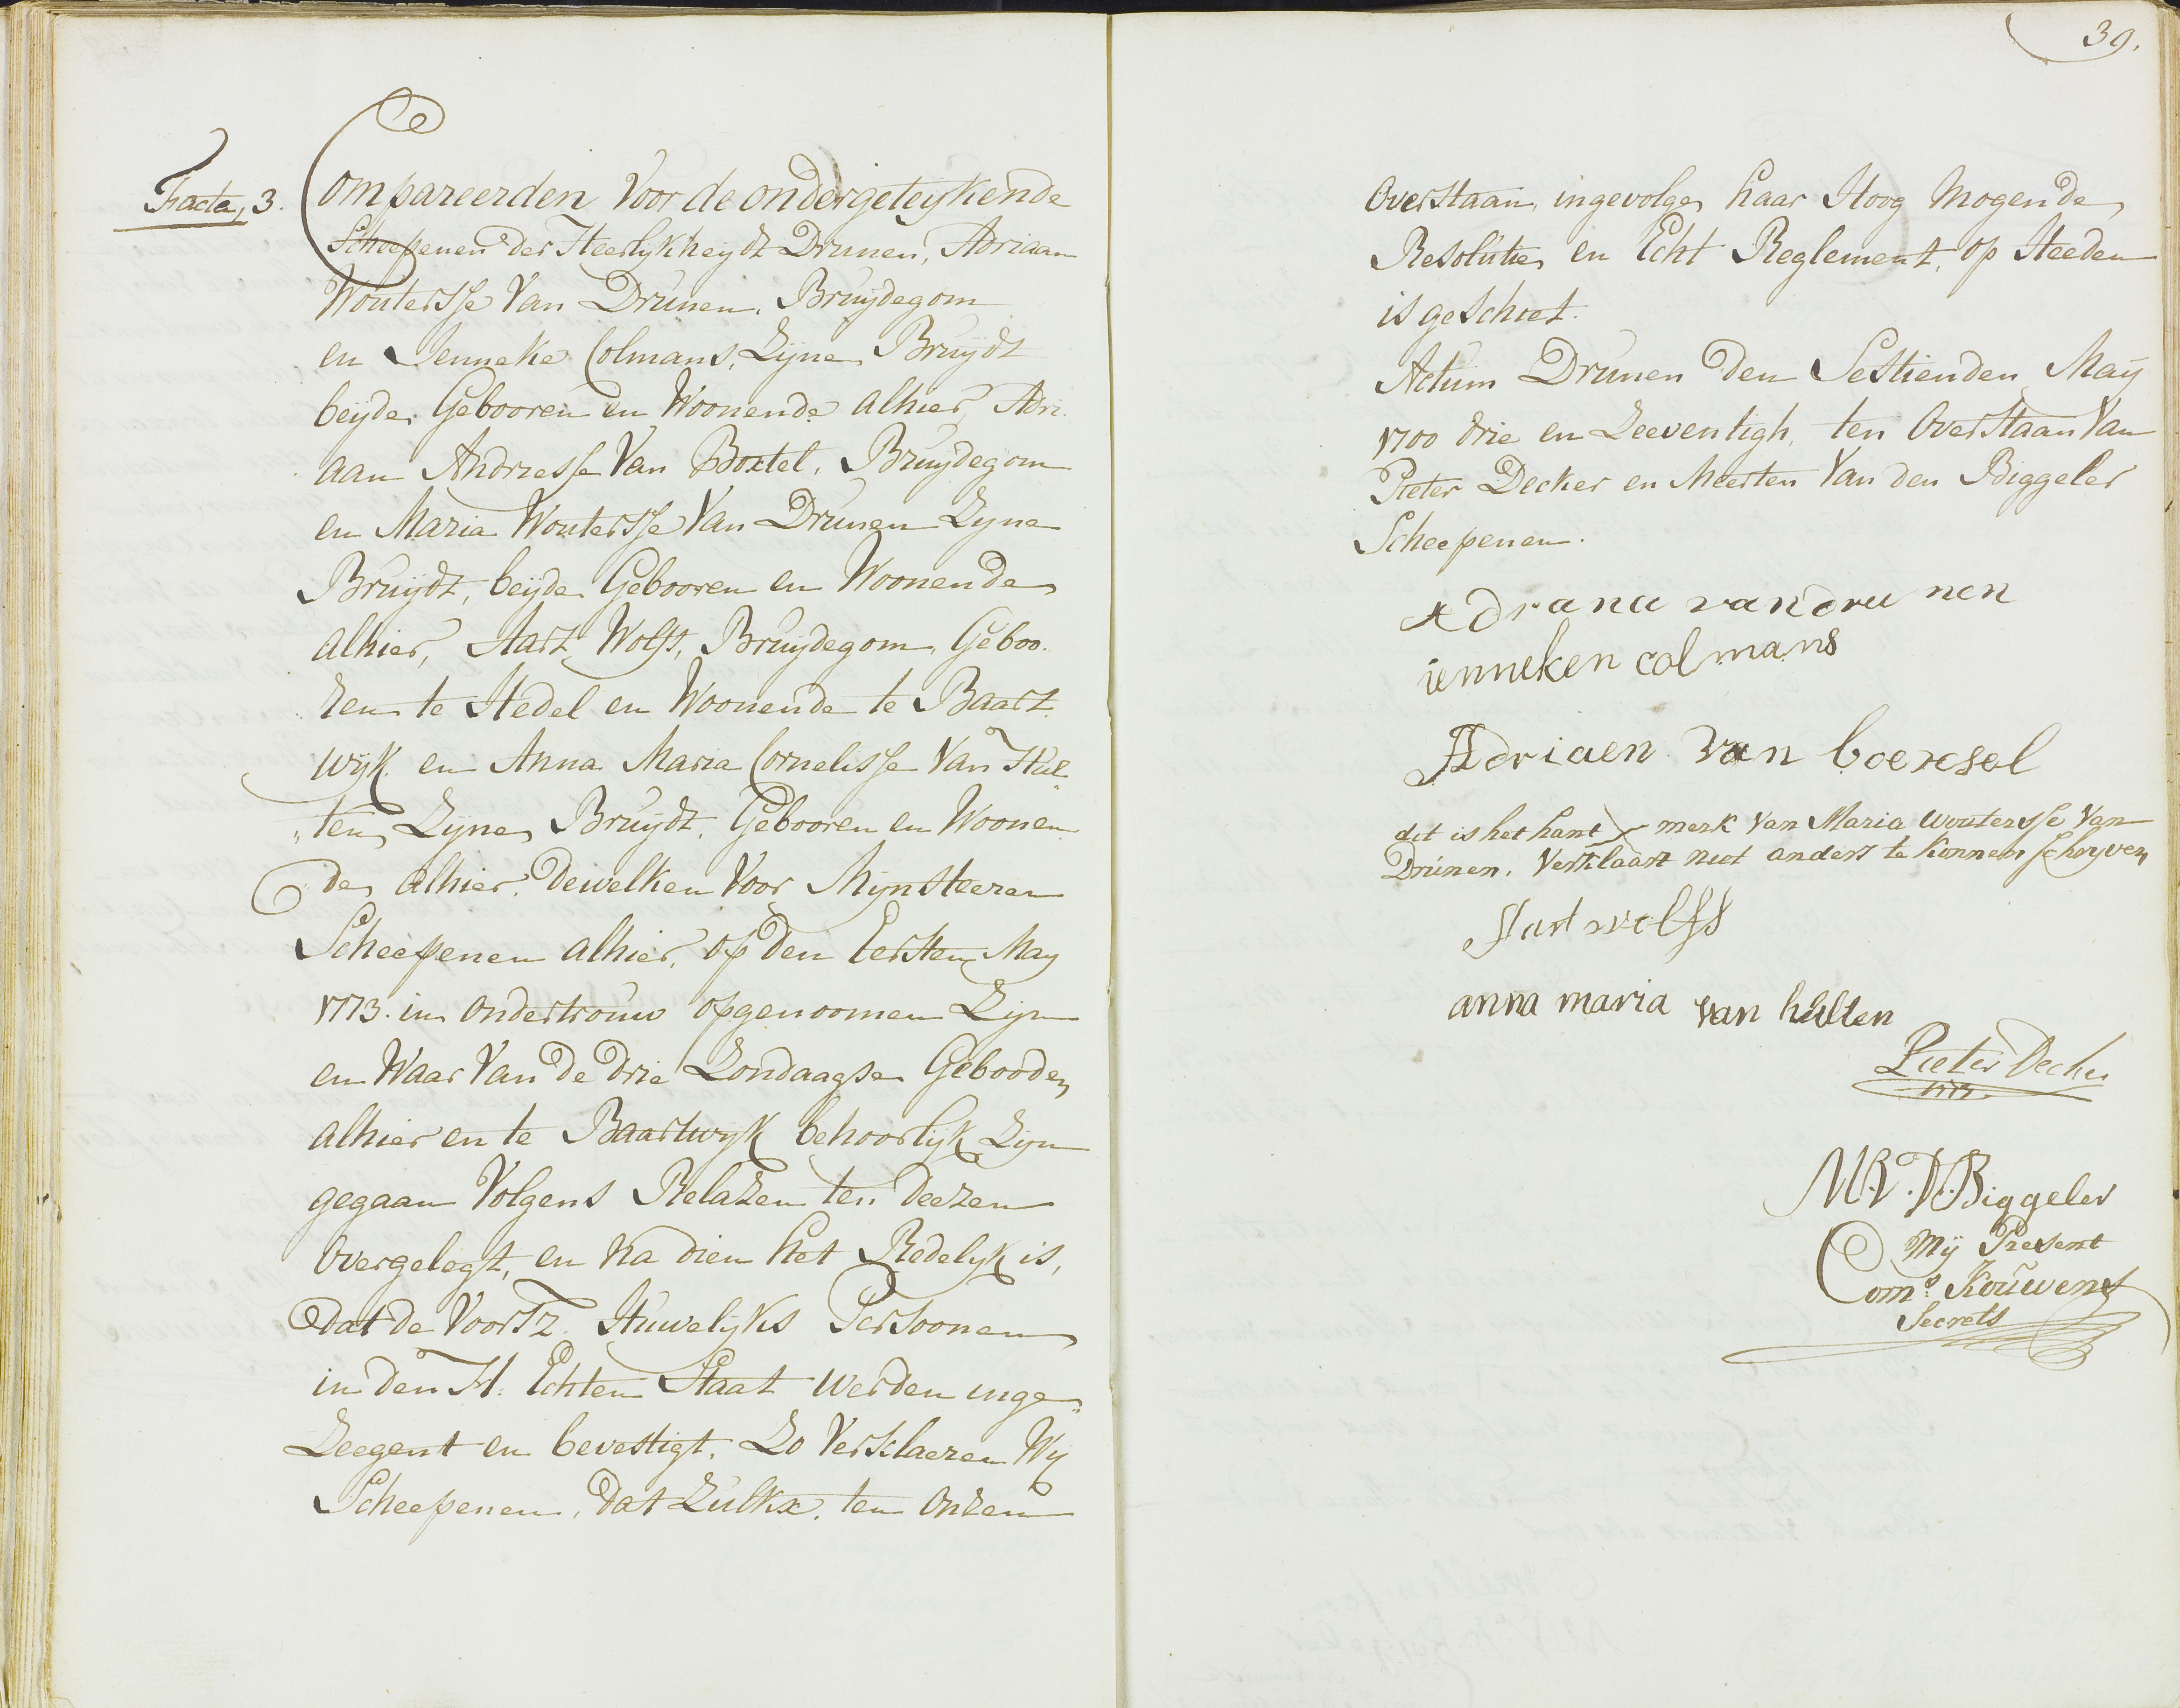 Facta, 3.
Compareerden Voor de ondergeteijkende
Scheepenen der Heerlijkheijdt Drunen, Adriaan
Woutersse Van Drunen, Bruijdegom
en Jenneke Colmans, Zijne Bruijdt
beijde Gebooren en Woonende alhier, Adri-
aan Andriesse Van Boxtel, Bruijdegom
en Maria Woutersse Van Drunen Zijne
Bruijdt, beijde Gebooren en Woonende
alhier, Aart Wolfs, Bruijdegom, Geboo-
ren te Hedel en Woonende te Baart-
wijk en Anna Maria Cornelisse Van Hul-
„ten, Zijne Bruijdt, Gebooren en Woonen
de alhier, dewelken Voor Mijn Heeren
Scheepenen alhier, op den Eersten Maij
1773. in Ondertrouw opgenoomen Zijn
en Waar Van de drie Zondaagse Gebooden
alhier en te Baartwijk behoorlijk Zijn
gegaan Volgens Relazen ten deezen
Overgelegt, en Na dien het Redelijk is,
dat de Voorsz. Huwelijks Persoonen
in den H. Echten Staat werden inge„
Zeegent en bevestigt. Zo Verklaeren Wij
Scheepenen, dat Zulkx. ten Onzen
39.
Overstaan, ingevolge, haar Hoog Mogende,
Resolutie, en Echt Reglement, op Heeden
is geschiet.
Actum Drunen den Sestienden Maij
1700 drie en Zeeventigh, ten Overstaan Van
Pieter Decker en Meerten Van den Biggeler
Scheepenen.
Adrana van dru nen
ienneken colmans
Adriaen van boexsel
dit is het hant X merk Van Maria Woutersse Van
Drunen, Verklaart niet anders te konnen schrijven
Aart wolfs
anna maria van hulten
Pieter Decker
1773
M.V.D.Biggeler
Mij Present
Corns. Kouwens
Secrets